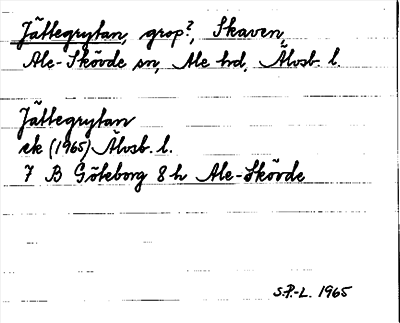 Jättegrytan, grop?, Skaven,
Ale-Skövde sn, Ale hd, Älvsb. l.
Jättegrytan
ek (1965) Älvsb. l.
7 B Göteborg 8 h Ale-Skövde
S.P.-L. 1965